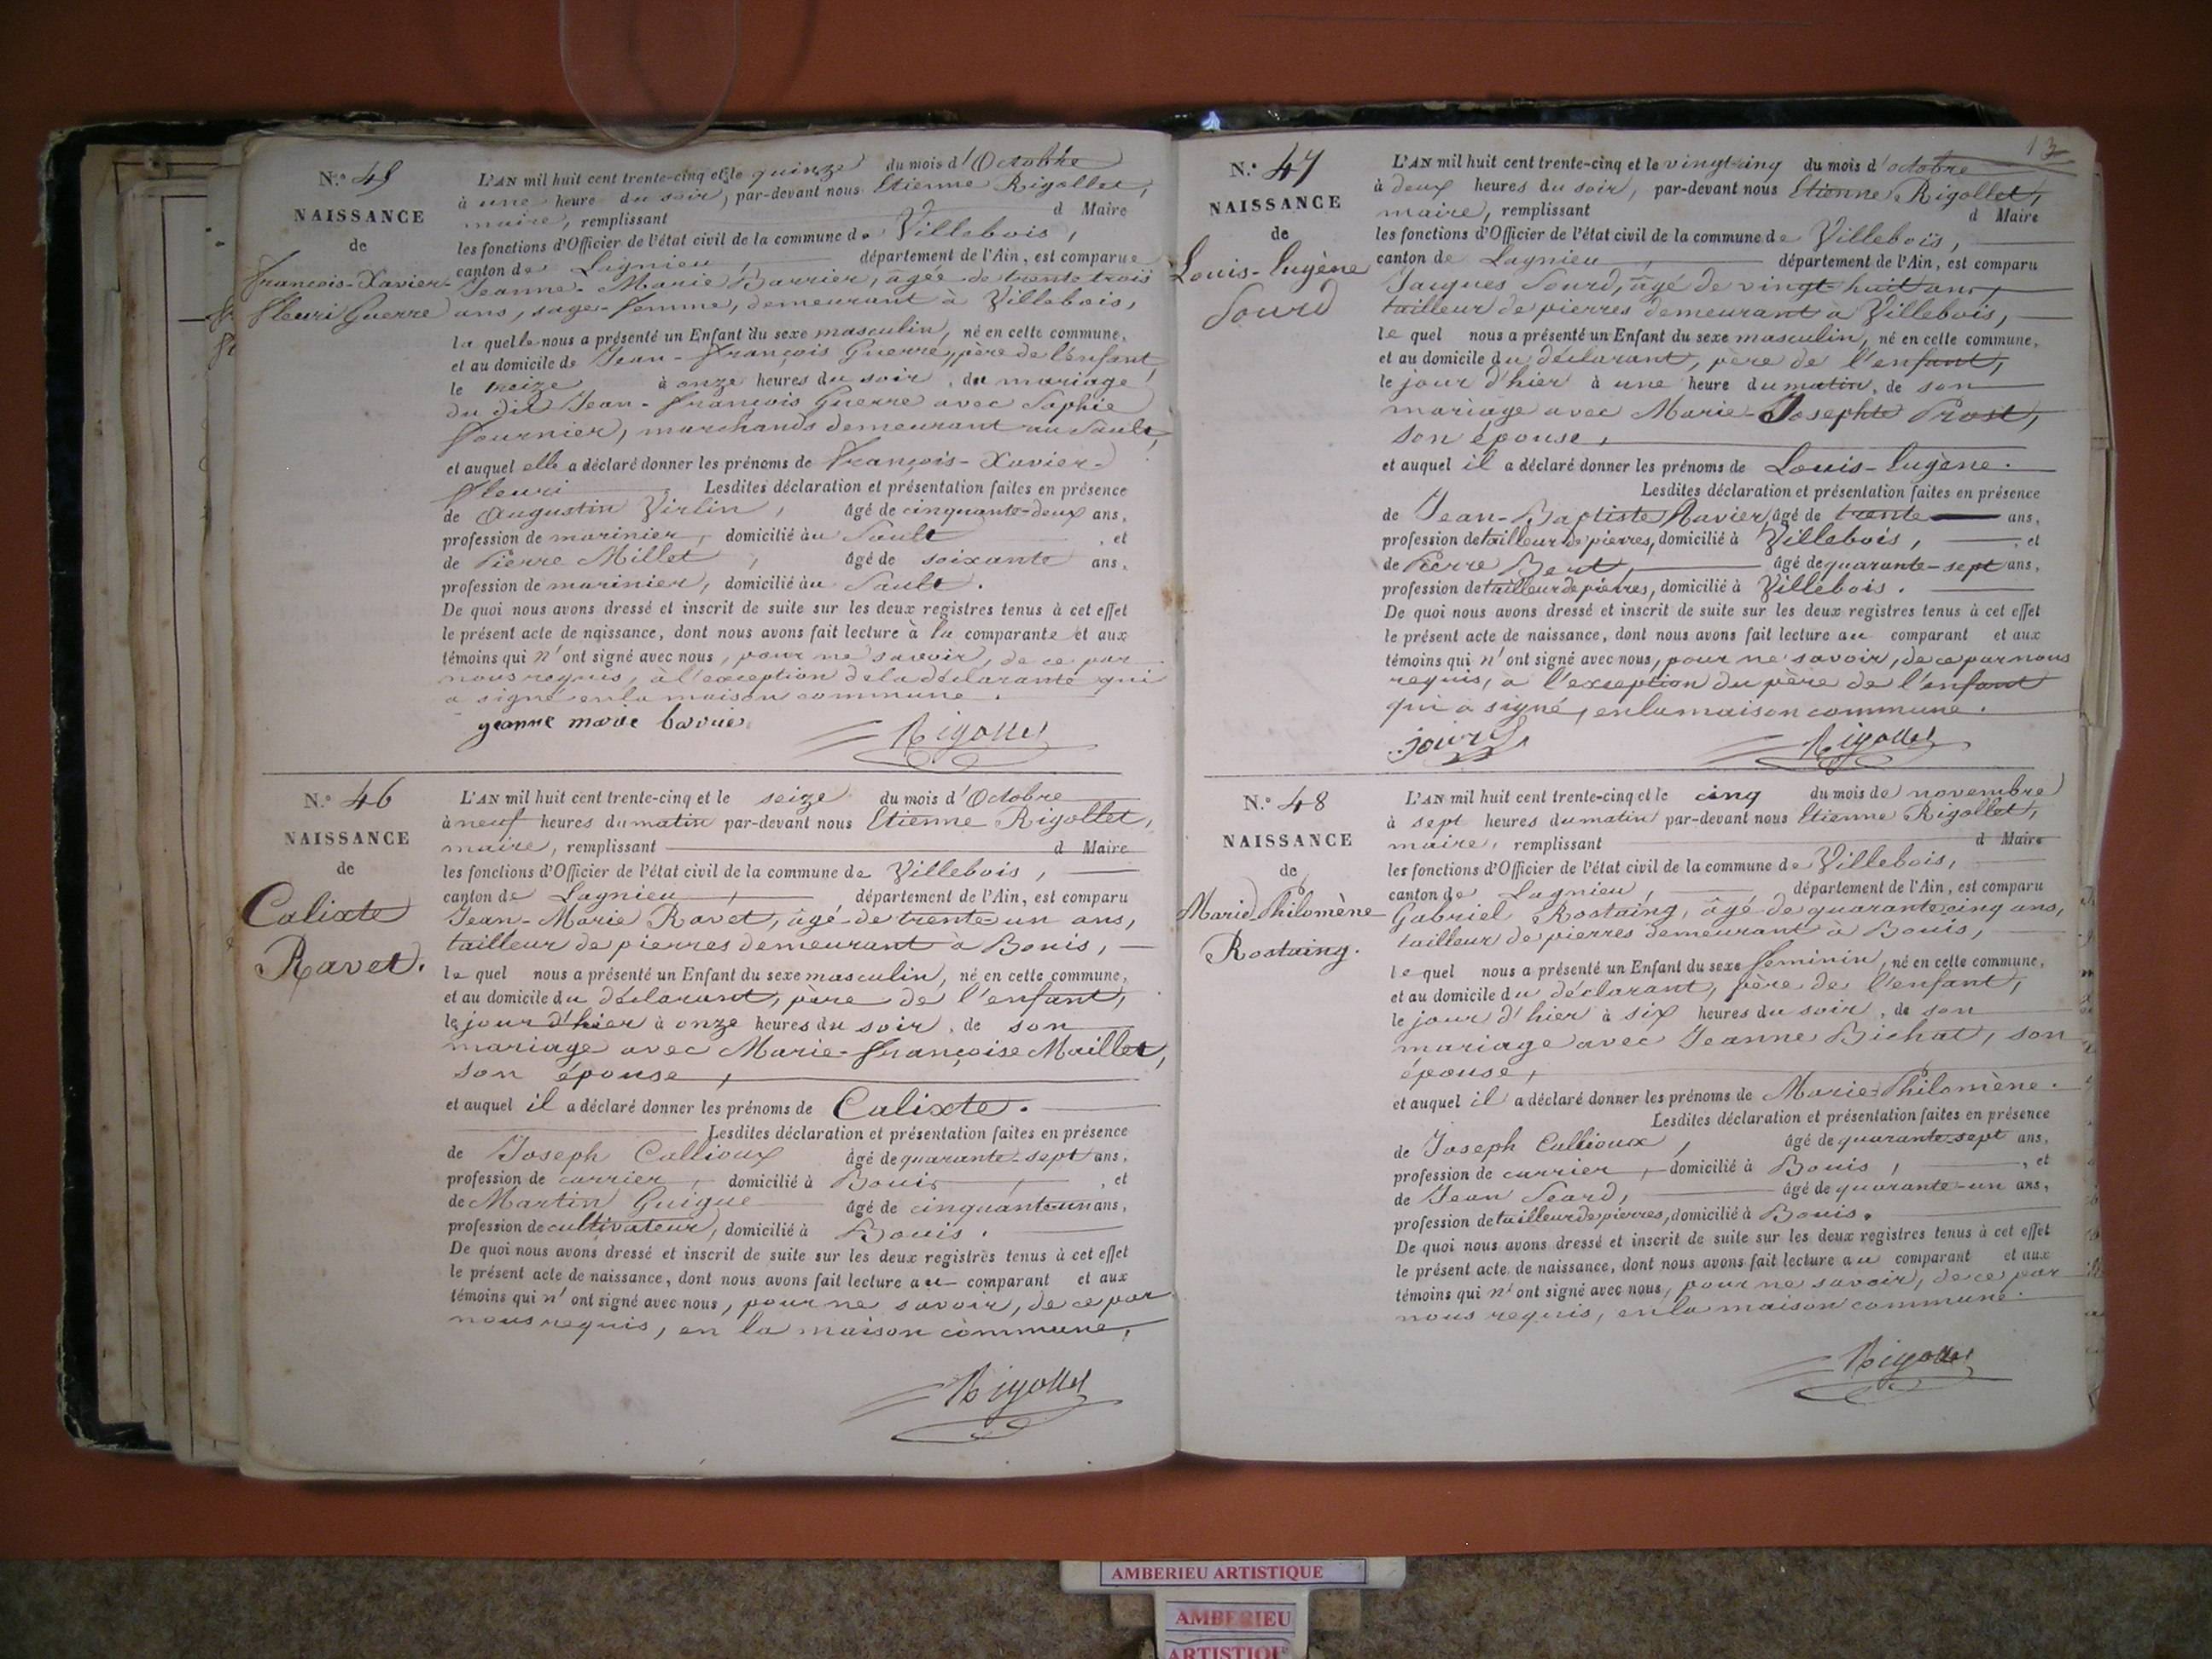 N.o 45
NAISSANCE
de
François-Xavier-
Fleuri Guerre
L'AN mil huit cent trente-cinq et le quinze du mois d'Octobre
à une heure du soir, par-devant nous Etienne Rigollet,
maire, remplissant d Maire
les fonctions d'Officier de l'état civil de la commune de Villebois,
canton de Lagnieu, département de l'Ain, est comparue
Jeanne-Marie Barrier, âgée de trente trois
ans, sage-femme, demeurant à Villebois,
la quelle nous a présenté un Enfant du sexe masculin, né en cette commune,
et au domicile de Jean-François Guerre, père de l'enfant,
le treize à onze heures du soir, du mariage
du dit Jean-François Guerre avec Sophie
Fournier, marchands demeurant au Sault,
et auquel elle a déclaré donner les prénoms de François-Xavier-
Fleuri Lesdites déclaration et présentation faites en présence
de Augustin Virlin, âgé de cinquante-deux ans,
profession de marinier, domicilié au Sault, et
de Pierre Millet, âgé de soixante ans,
profession de marinier, domicilié au Sault.
De quoi nous avons dressé et inscrit de suite sur les deux registres tenus à cet effet
le présent acte de naissance, dont nous avons fait lecture à la comparante et aux
témoins qui n'ont signé avec nous, pour ne savoir, de ce par
nous requis, à l'exception de la déclarante qui
a signé en la maison commune.
jeanne marie barrier
Rigollet
N.o 46
NAISSANCE
de
Calixte
Ravet.
L'AN mil huit cent trente-cinq et le seize du mois d'Octobre
à neuf heures du matin par-devant nous Etienne Rigollet,
maire, remplissant d Maire
les fonctions d'Officier de l'état civil de la commune de Villebois,
canton de Lagnieu, département de l'Ain, est comparu
Jean-Marie Ravet, âgé de trente un ans,
tailleur de pierres demeurant à Bouis,
le quel nous a présenté un Enfant du sexe masculin, né en cette commune,
et au domicile du déclarant, père de l'enfant,
le jour d'hier à onze heures du soir, de son
mariage avec Marie-Françoise Maillet,
son épouse,
et auquel il a déclaré donner les prénoms de Calixte.
Lesdites déclaration et présentation faites en présence
de Joseph Callioux âgé de quarante-sept ans,
profession de carrier, domicilié à Bouis, et
de Martin Guigue âgé de cinquante un ans,
profession de cultivateur, domicilié à Bouis.
De quoi nous avons dressé et inscrit de suite sur les deux registres tenus à cet effet
le présent acte de naissance, dont nous avons fait lecture au comparant et aux
témoins qui n'ont signé avec nous, pour ne savoir, de ce par
nous requis, en la maison commune,
Rigollet
13
N.o 47
NAISSANCE
de
Louis-Eugène
Jourd
L'AN mil huit cent trente-cinq et le vingt cinq du mois d'octobre
à deux heures du soir, par-devant nous Etienne Rigollet,
maire, remplissant d Maire
les fonctions d'Officier de l'état civil de la commune de Villebois,
canton de Lagnieu, département de l'Ain, est comparu
Jacques Jourd, âgé de vingt huit ans,
tailleur de pierres demeurant à Villebois,
le quel nous a présenté un Enfant du sexe masculin, né en cette commune,
et au domicile du déclarant, père de l'enfant,
le jour d'hier à une heure du matin, de son
mariage avec Marie-Josephte Prost,
son épouse,
et auquel il a déclaré donner les prénoms de Louis-Eugène.
Lesdites déclaration et présentation faites en présence
de Jean-Baptiste Ravier, âgé de trente ans,
profession de tailleur de pierres, domicilié à Villebois, et
de Pierre Bert, âgé de quarante-sept ans,
profession de tailleur de pierres, domicilié à Villebois.
De quoi nous avons dressé et inscrit de suite sur les deux registres tenus à cet effet
le présent acte de naissance, dont nous avons fait lecture au comparant et aux
témoins qui n'ont signé avec nous, pour ne savoir, de ce par nous
requis, à l'exception du père de l'enfant
qui a signé, en la maison commune.
jourd
Rigollet
N.o 48
NAISSANCE
de
Marie-Philomène
Rostaing.
L'AN mil huit cent trente-cinq et le cinq du mois de novembre
à sept heures du matin par-devant nous Etienne Rigollet,
maire, remplissant d Maire
les fonctions d'Officier de l'état civil de la commune de Villebois,
canton de Lagnieu, département de l'Ain, est comparu
Gabriel Rostaing, âgé de quarante cinq ans,
tailleur de pierres demeurant à Bouis,
le quel nous a présenté un Enfant du sexe féminin, né en cette commune,
et au domicile du déclarant, père de l'enfant,
le jour d'hier à six heures du soir, de son
mariage avec Jeanne Bichat, son
épouse,
et auquel il a déclaré donner les prénoms de Marie-Philomène.
Lesdites déclaration et présentation faites en présence
de Joseph Callioux, âgé de quarante-sept ans,
profession de carrier, domicilié à Bouis, et
de Jean Jeard, âgé de quarante-un ans,
profession de tailleur de pierres, domicilié à Bouis.
De quoi nous avons dressé et inscrit de suite sur les deux registres tenus à cet effet
le présent acte de naissance, dont nous avons fait lecture au comparant et aux
témoins qui n'ont signé avec nous, pour ne savoir, de ce par
nous requis, en la maison commune.
Rigollet
AMBERIEU ARTISTIQUE
AMBERIEU
ARTISTIQUE